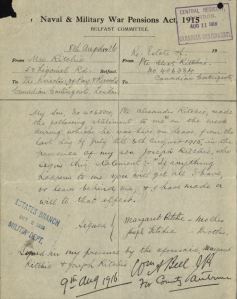 CENTRAL REGISTRY
AUG 11 1916
CANADIAN CONTINGENTS
Naval & Military War Pensions Act, 1915
BELFAST COMMITTEE.
8th August 1916
From
Mrs Ritchie
Belfast
To The Director of Pay & Records
Canadian Contingents, London
Re Estate of
Pte Alexr Ritchie
Canadian Contingents
My son, Pte Alexander Ritchie, made
the following statement to me in the week
during which he was here on leave from the
last day of July till 5th August 1915, in the
presence of my son Joseph Ritchie, who
signs this statement:- "If anything
happens to me you will get all I have,
to leave behind me, & I have made a
will to that effect.
Signed
Margaret Ritchie - Mother
Joseph Ritchie Brother
ESTATES BRANCH
MILITIA DEPT.
Signed in my presence by the aforesaid Margaret
Ritchie & Joseph Ritchie
9th Aug 1916
Wm A Bell JP
For County Antrim